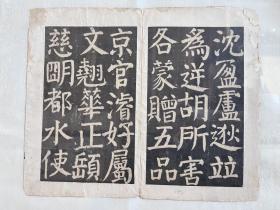 沈盈盧逖並
為逆胡所害
各蒙贈五品
京官濬好屬
文翹華正頣
慈明都水使